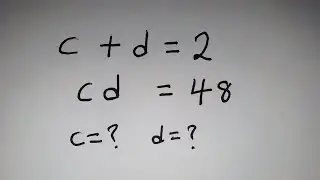 c + d = 2
cd = 48
c = ? d = ?